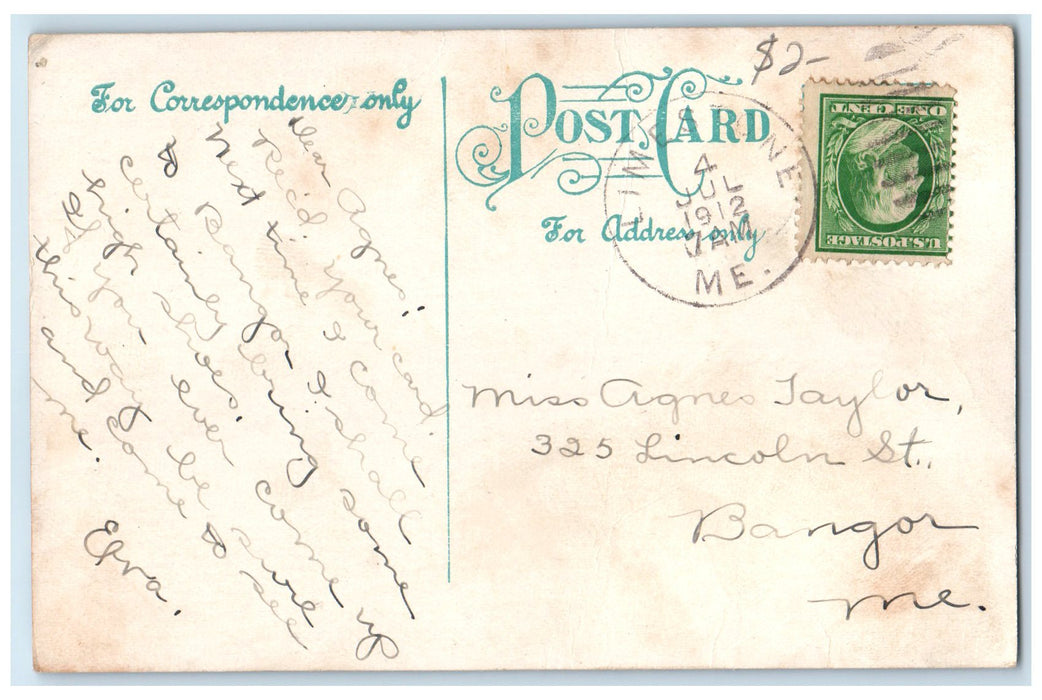 For Correspondence only
Dear Agnes:
Rec'd your card.
Next time I come
to Bangor I shall
certainly bring some
high shoes.
If you ever come up
this way be sure
and come to see
me.
Elva.
POST CARD
$2-
For Address only
4
JUL
1912
7AM
ME.
ONE CENT
U.S. POSTAGE
Miss Agnes Taylor,
325 Lincoln St.,
Bangor
Me.